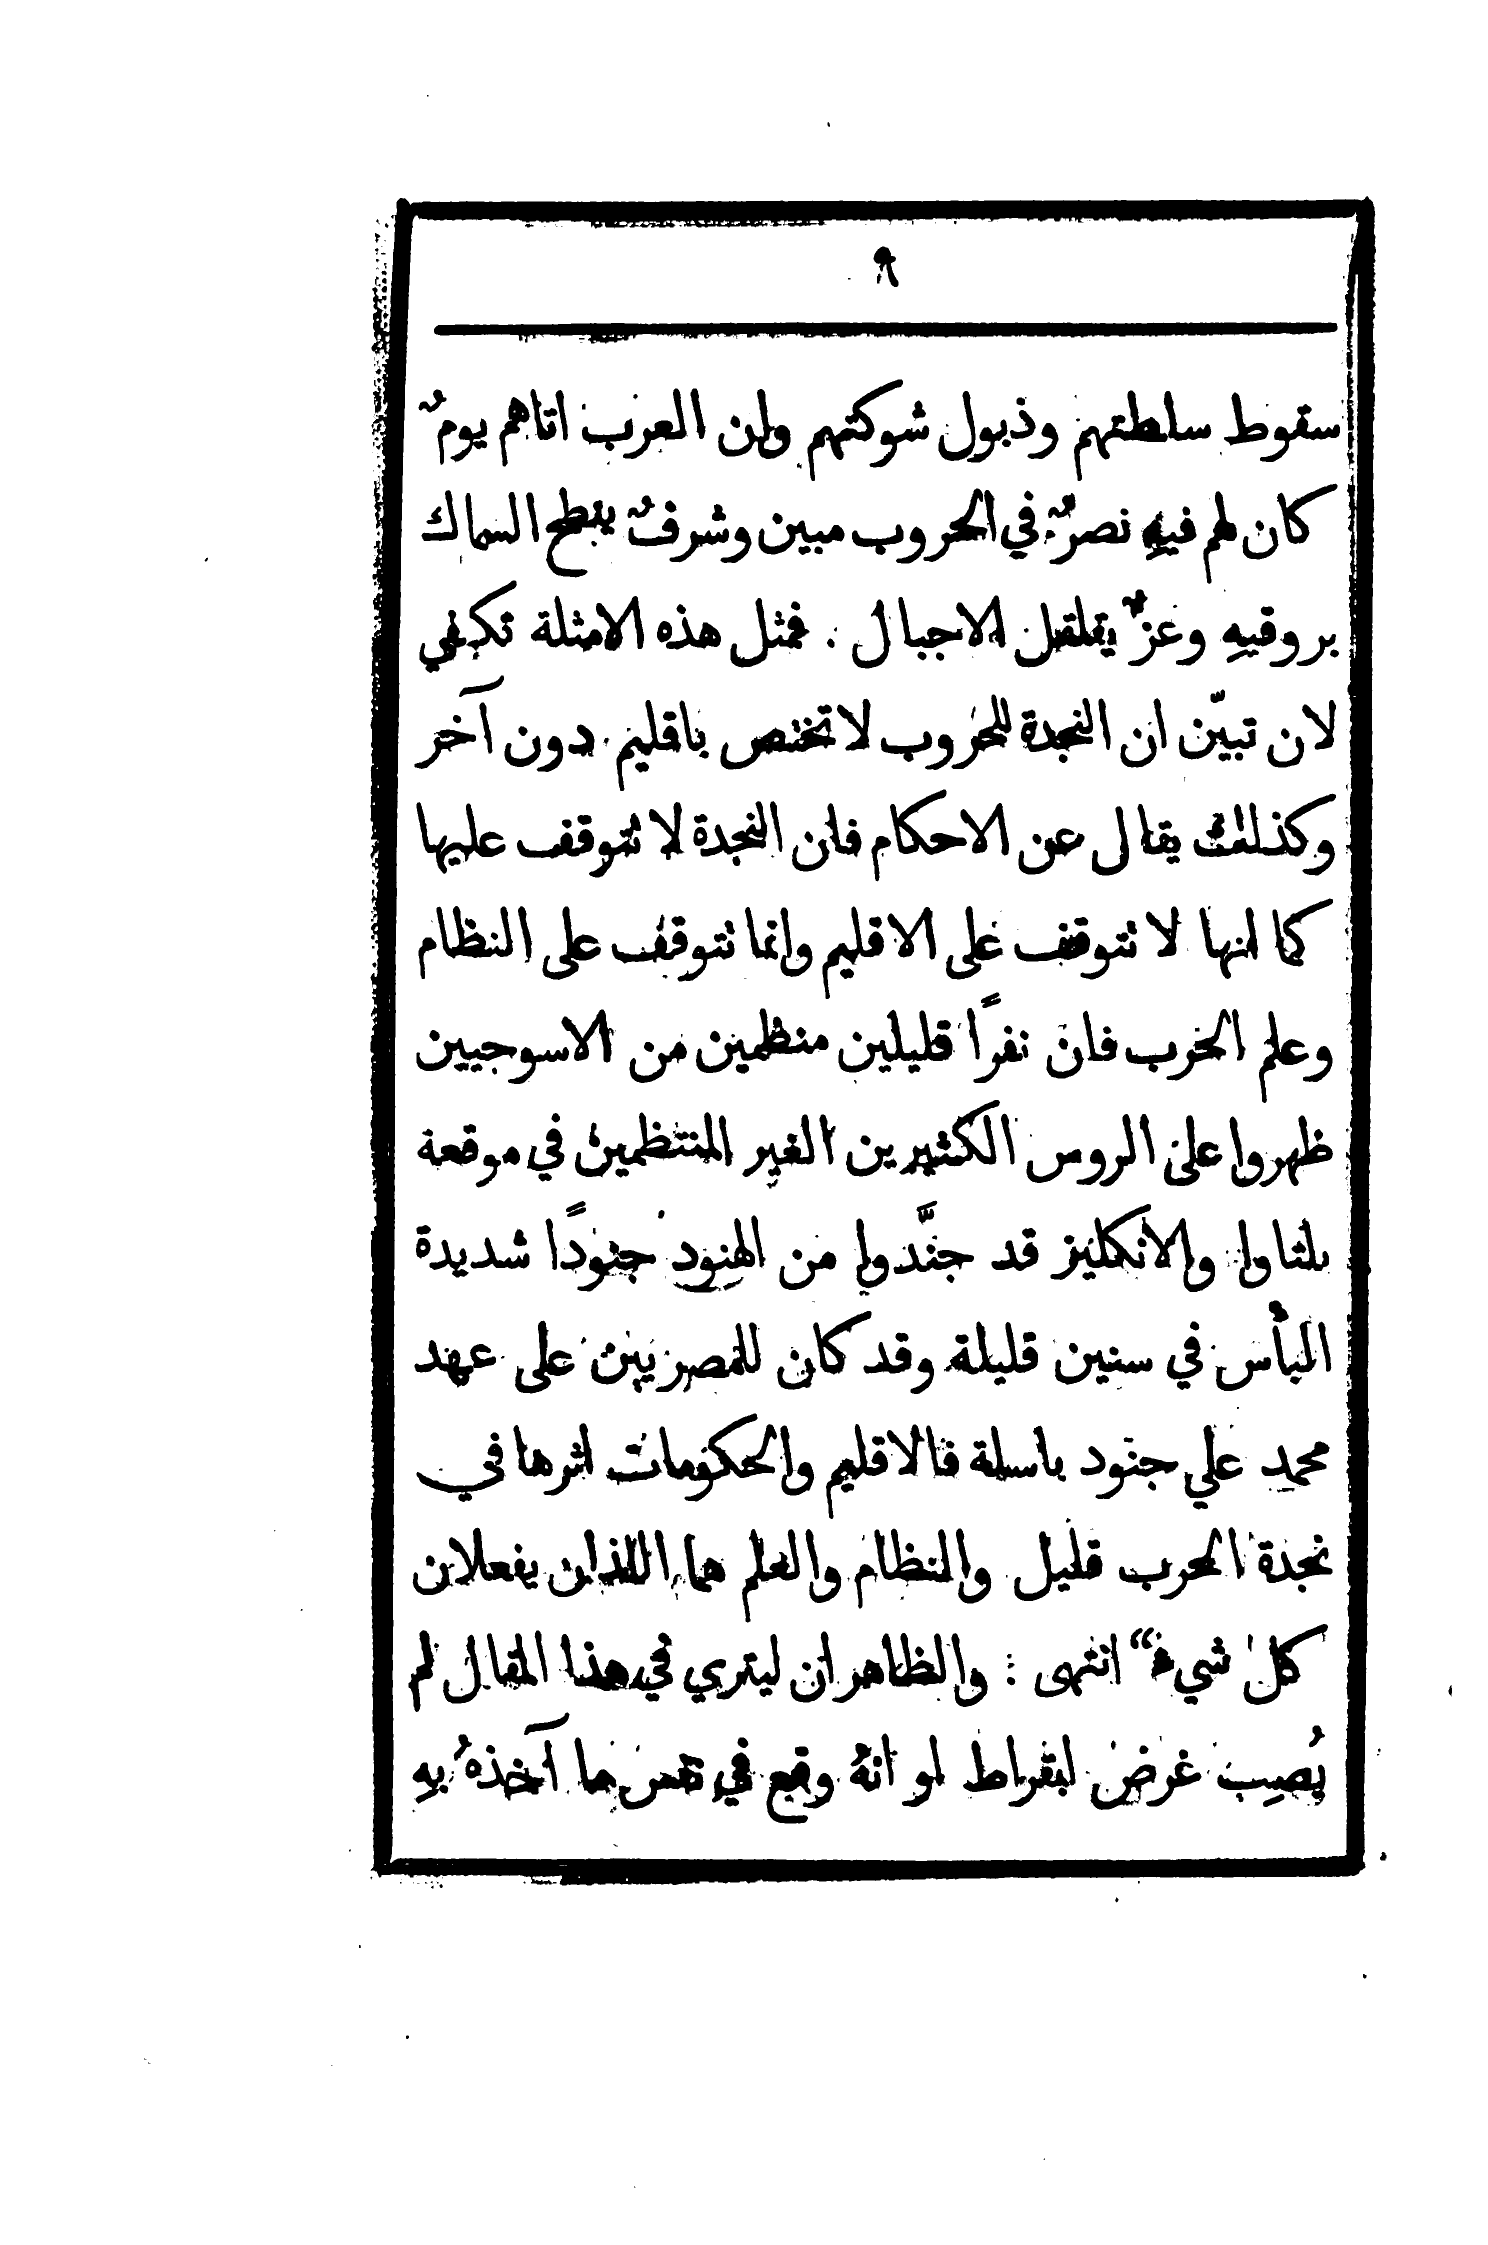 سقوط سلطتهم وذبول شوكتهم وان العرب اتاهم يومٌ
كان لهم فيهِ نصرٌ في الحروب مبين وشرفٌ ينطح السماك
بروقيهِ وعزٌّ يقلقل الاجبال . فمثل هذه الامثلة تكفي
لان تبيّن ان النجدة للحروب لا تختص باقليم دون آخر
وكذلك يقال عن الاحكام فان النجدة لا تتوقف عليها
كما انها لا تتوقف على الاقليم وانما تتوقف على النظام
وعلم الحرب فان نفرًا قليلين منظمين من الاسوجيين
ظهروا على الروس الكثيرين الغير المنتظمين في موقعة
بلتاوا والانكليز قد جنَّدوا من الهنود جنودًا شديدة
البأس في سنين قليلة وقد كان للمصريين على عهد
محمد علي جنود باسلة فالاقليم والحكومات اثرها في
نجدة الحرب قليل والنظام والعلم هما اللذان يفعلان
كل شيء“ انتهى : والظاهر ان ليتري في هذا المقال لم
يُصِب غرض ابقراط او انهُ وقع في نفس ما آخذهُ بهِ